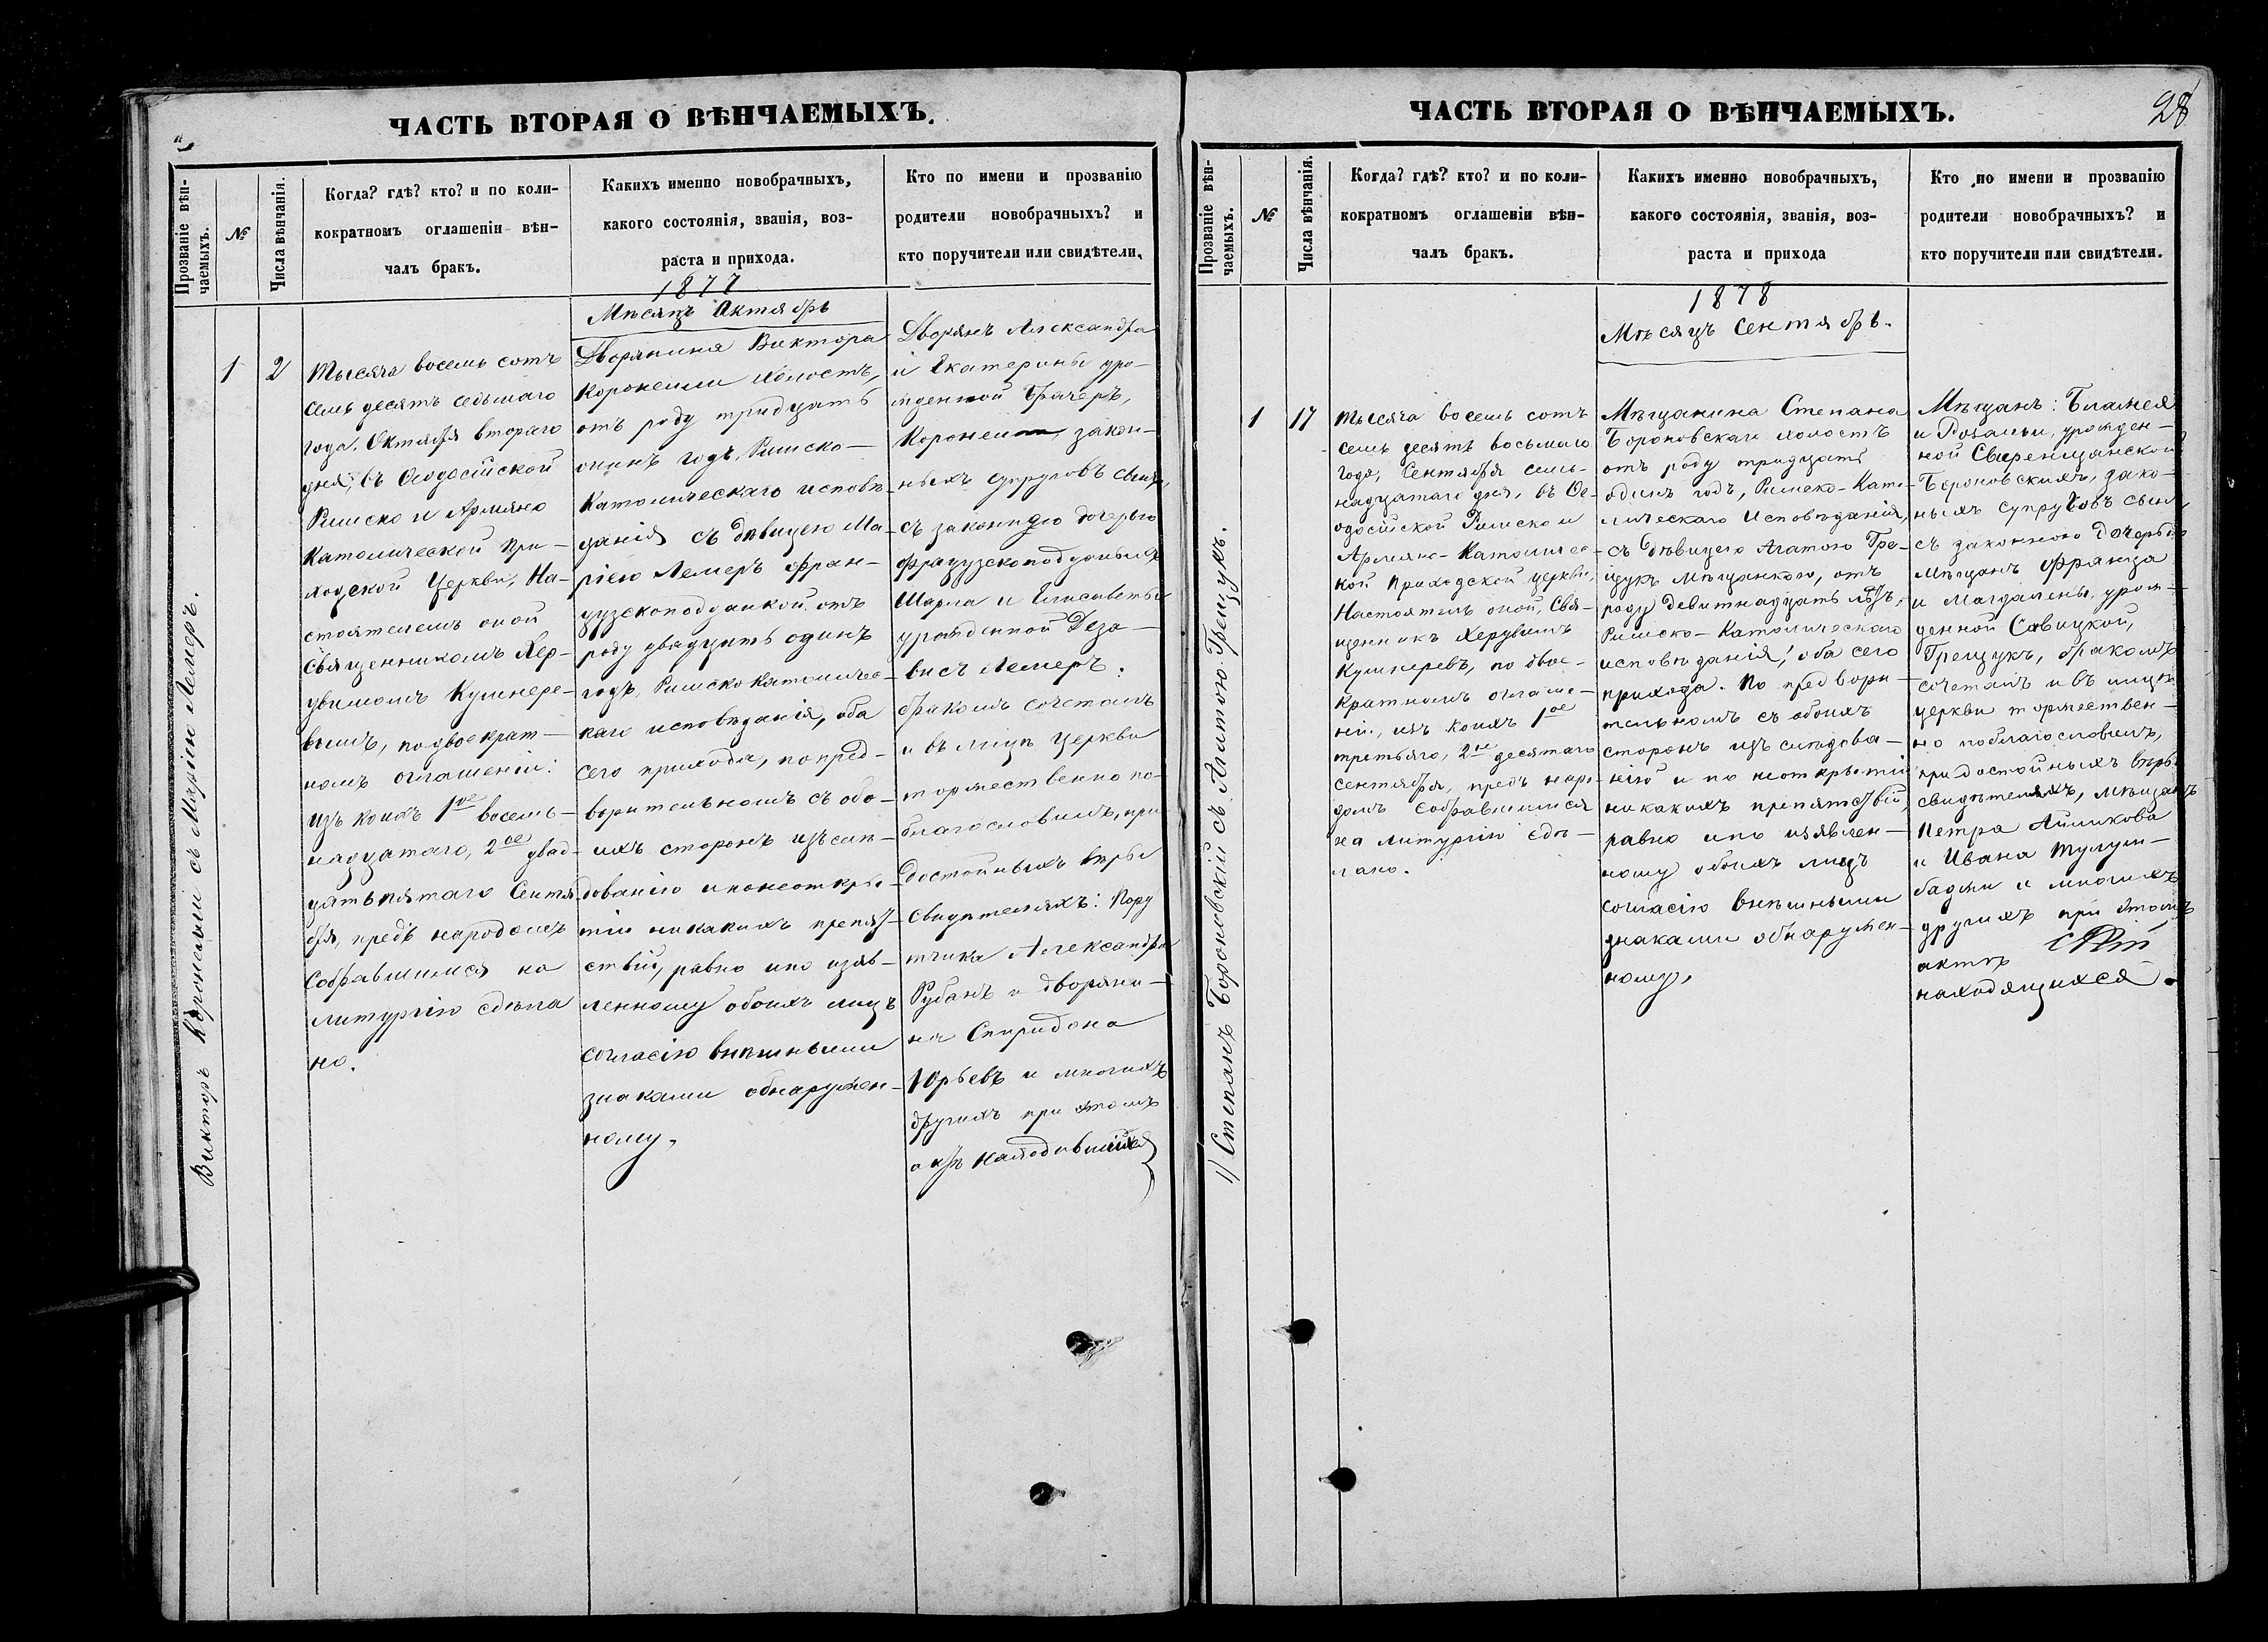 ЧАСТЬ ВТОРАЯ О ВѢНЧАЕМЫХЪ.
Прозваніе вѣн-
чаемыхъ.
№
Числа вѣнчанія.
Когда? гдѣ? кто? и по коли-
кократномъ оглашеніи вѣн-
чалъ бракъ.
Какихъ именно новобрачныхъ,
какого состоянія, званія, воз-
раста и прихода.
Кто по имени и прозванію
родители новобрачныхъ? и
кто поручители или свидѣтели.
1877
Мѣсяцъ Октябрь
Викторъ Коронелли съ Маріею Лемеръ.
1
2
Тысяча восемь сотъ
семь десятъ седьмаго
года, Октября втораго
дня, въ Ѳеодосійской
Римско и Армяно
Католической При-
ходской Церкви, На-
стоятелемъ оной
Священникомъ Хер-
увимомъ Кушнере-
вымъ, по двоекрат-
номъ оглашеніи:
изъ коихъ 1ое восемь-
надцатаго, 2ое двад-
цать пятаго Сентя-
бря, предъ народомъ
собравшимся на
литургію сдѣла
но.
Дворянина Виктора
Коронелли холостъ,
отъ роду тридцать
одинъ годъ, Римско-
Католическаго исповѣ-
данія съ дѣвицею Ма-
ріею Лемеръ фран-
цузскоподданкой отъ
роду двадцать одинъ
годъ, Римско Католичес-
каго исповѣданія, оба
сего прихода, по пред-
варительномъ съ обо-
ихъ сторонъ изъслѣ-
дованію и по неоткры-
тіи никакихъ препят-
ствій, равно и по изъяв-
ленному обоихъ лицъ
согласію внѣшными
знаками обнаружен-
ному,
Дворянъ Александра
и Екатерины уро-
жденной
Коронелли, закон-
ныхъ супруговъ сынъ,
съ законною дочерью
французскоподданныхъ
Шарла и Елисаветы
урожденной Деза-
висъ Лемеръ:
бракомъ сочеталъ
и въ лицѣ Церкви
торжественно по-
благословилъ, при
достойныхъ вѣры
свидѣтеляхъ: Пору
тчика Александра
Рубанъ и дворяни-
на Спиридона
Юрьевъ и многихъ
другихъ при этомъ
актѣ находившихся
ЧАСТЬ ВТОРАЯ О ВѢНЧАЕМЫХЪ.
28
Прозваніе вѣн-
чаемыхъ.
№
Числа вѣнчанія.
Когда? гдѣ? кто? и по коли-
кократномъ оглашеніи вѣн-
чалъ бракъ.
Какихъ именно новобрачныхъ,
какого состоянія, званія, воз-
раста и прихода
Кто по имени и прозванію
родители новобрачныхъ? и
кто поручители или свидѣтели.
1878
Мѣсяцъ Сентябрь.
1) Степанъ Бороновскій съ Агатою Грещукъ.
1
17
Тысяча восемь сотъ
семь десятъ восьмаго
года, Сентября семь-
надцатаго дня, въ Ѳе-
одосійской Римско и
Армяно-Католичес-
кой Приходской церкви,
Настоятель оной, Свя-
щенникъ Херувимъ
Кушнеревъ, по двое-
кратномъ оглаше-
ніи, изъ коихъ 1ое
третьяго, 2ое десятаго
Сентября, предъ наро-
домъ собравшимся
на литургію сдѣ-
лано.
Мѣщанина Степана
Бороновскаго холостъ
отъ роду тридцать
одинъ годъ, Римско-Като-
лическаго Исповѣданія,
съ Дѣвицею Агатою Гре-
щукъ мѣщанкою, отъ
роду девитнадцать лѣтъ,
Римско-Католическаго
исповѣданія, оба сего
прихода. По предвори-
тельномъ съ обоихъ
сторонъ изъслѣдова-
нію и по неоткрытіи
никакихъ препятствій,
равно и по изявлен-
ному обоихъ лицъ
согласію внѣшными
знаками обнаружен-
ному,
Мѣщанъ: Блажея
и Розаліи, урожден-
ной
Бороновскихъ, зако-
ныхъ супруговъ сынъ
съ законною дочерью
мѣщанъ Франца
и Магдалены, урож-
денной Савицкой,
Грещукъ, бракомъ
сочеталъ и въ лицѣ
церкви торжествен-
но поблагословилъ,
при достойныхъ вѣры
свидѣтеляхъ, мѣщанъ
Петра Айликова
и Ивана Тулум-
баджи и многихъ
другихъ при этомъ
актѣ
находящихся.